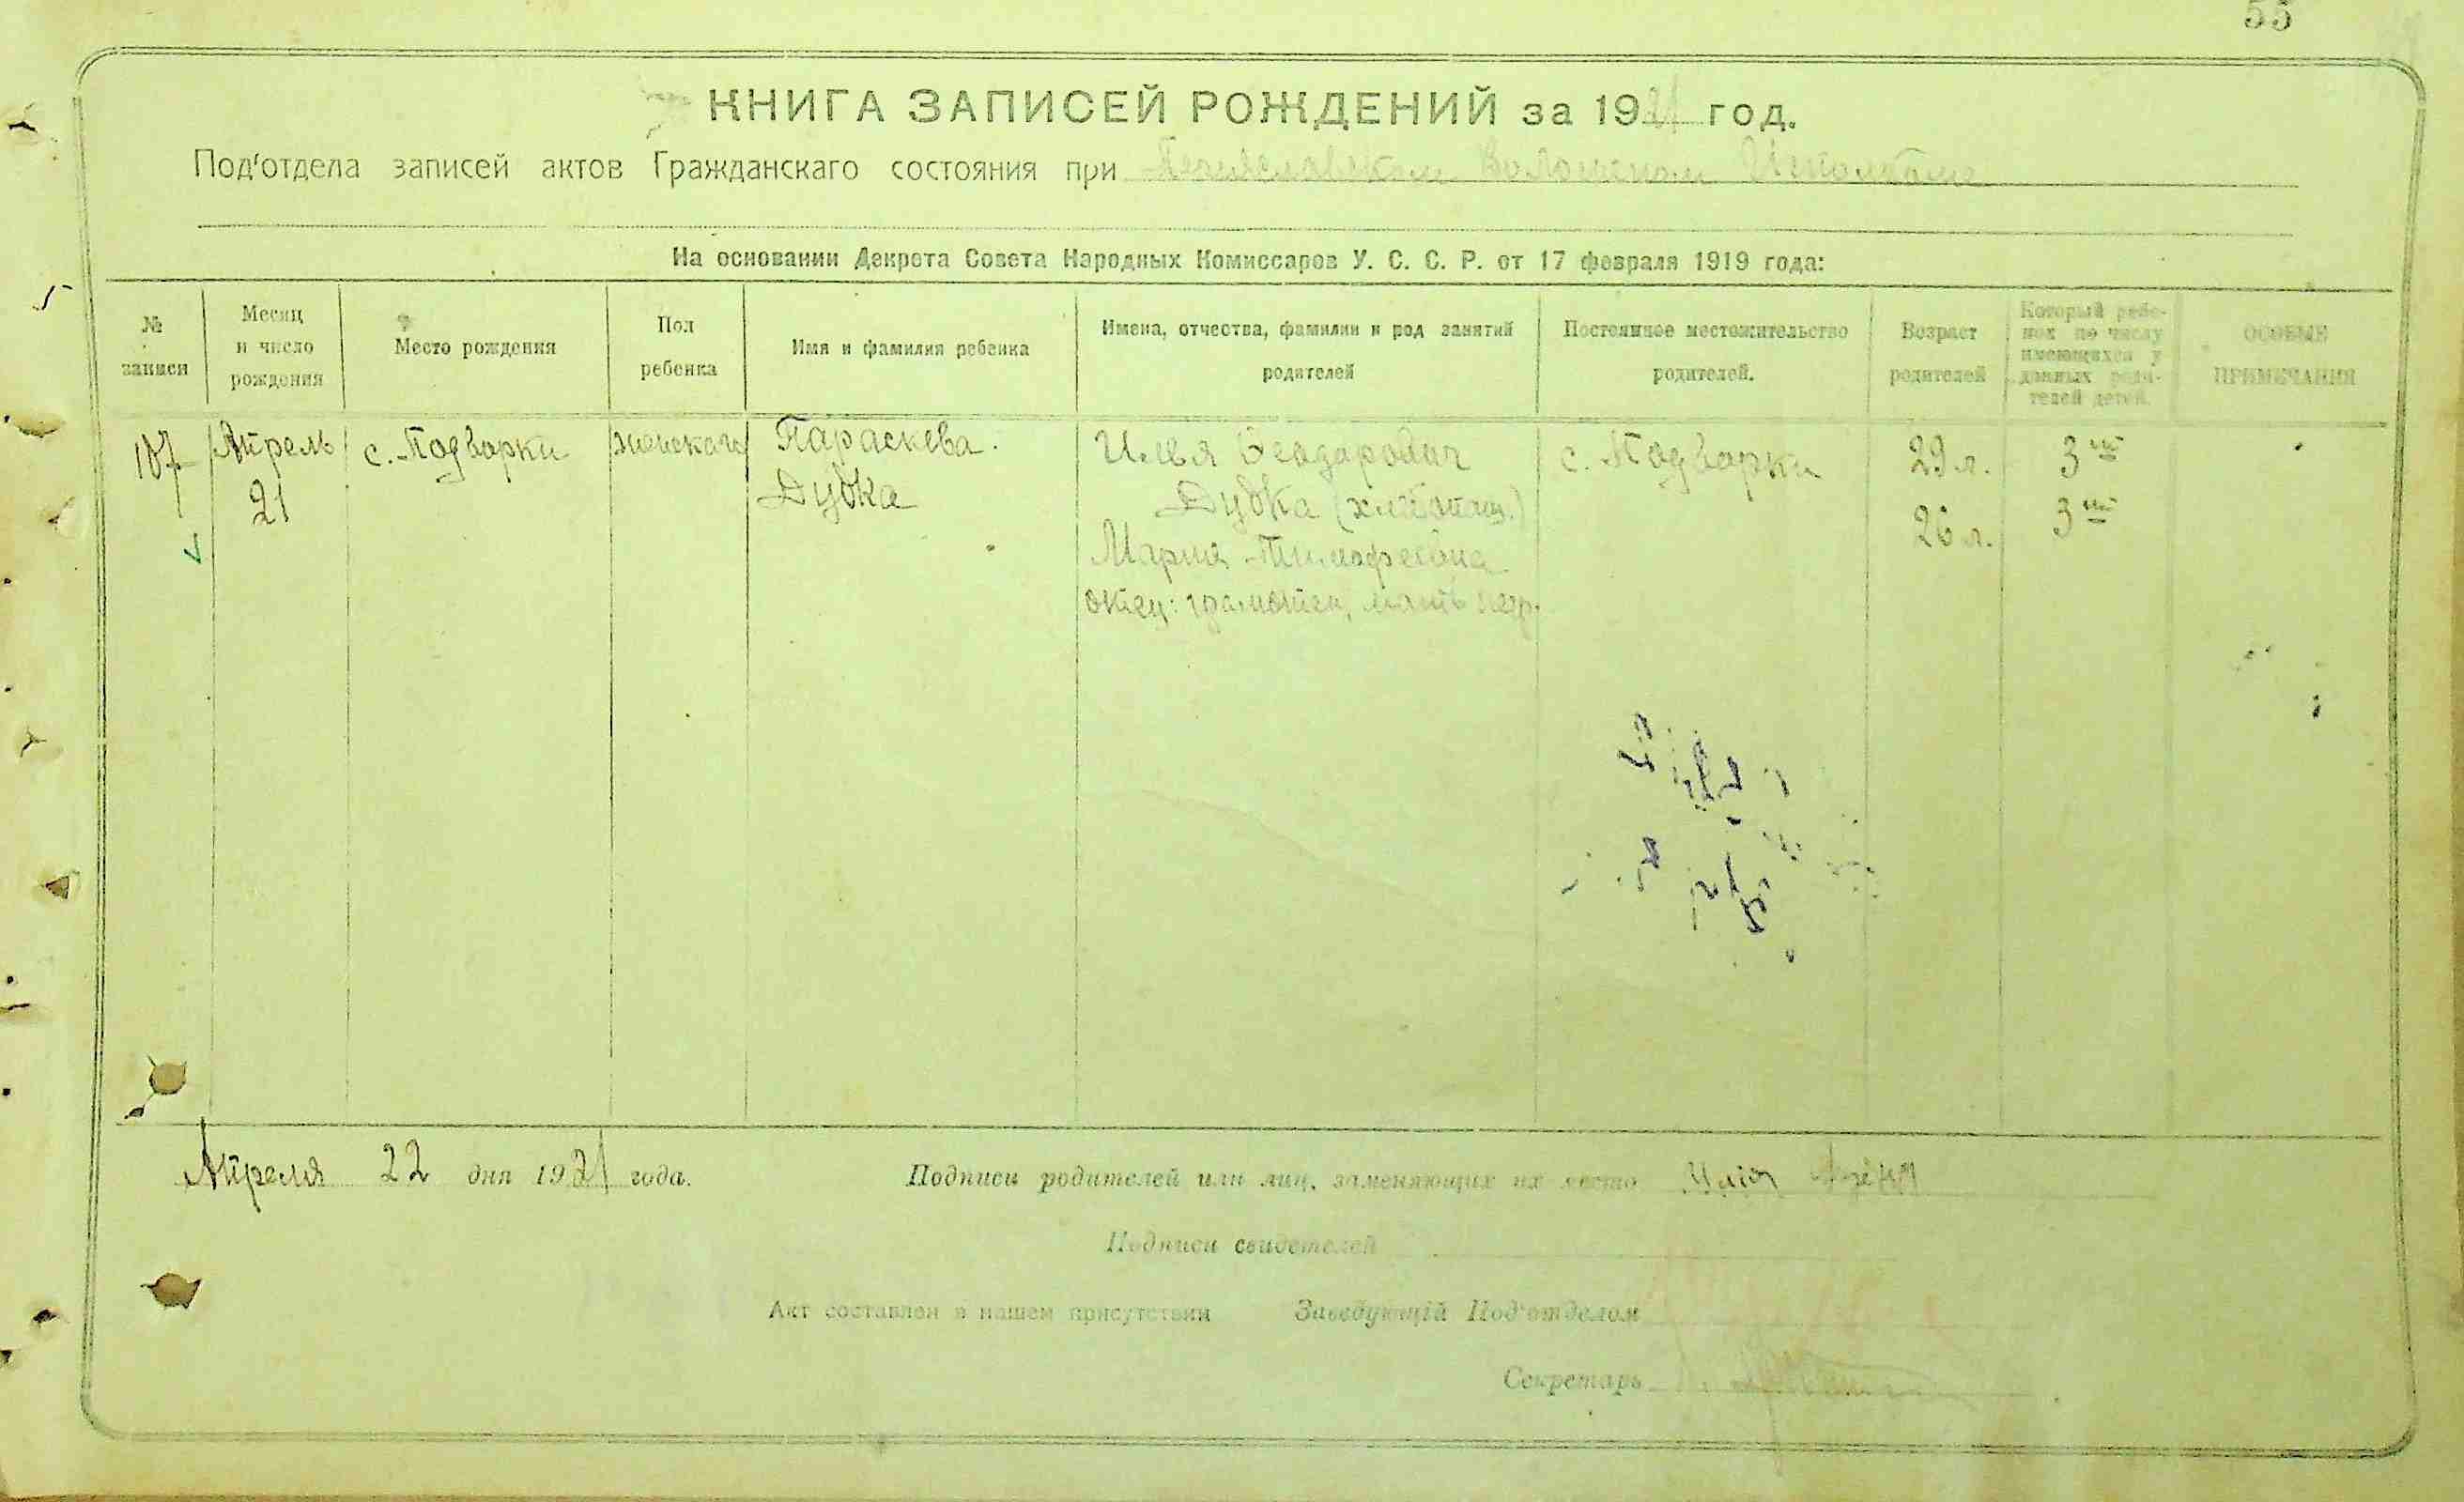 55
КНИГА ЗАПИСЕЙ РОЖДЕНИЙ за 1921 год.
Под'отдела записей актов Гражданскаго состояния при Волостном Исполкоме
На основании Декрета Совета Народных Комиссаров У. С. С. Р. от 17 февраля 1919 года:
№ записи
Месяц и число рождения
Место рождения
Пол ребенка
Имя и фамилия ребенка
Имена, отчества, фамилии и род занятий родителей
Постоянное местожительство родителей.
Возраст родителей
Который ребенок по числу имеющихся у данных родителей детей.
ОСОБЫЕ ПРИМЕЧАНИЯ
107 Апрель с. Подворки женскаго Параскева. Илья Феодорович с. Подворки 29 л. 3ий
21 Дубка Дубка (хлебопаш.) 26 л. 3ий
Мария Тимофеевна
отец: грамотен, мать негр.
Апреля 22 дня 1921 года. Подписи родителей или лиц, заменяющих их место
Подписи свидетелей
Акт составлен в нашем присутствии Заведующій Под'отделом
Секретарь